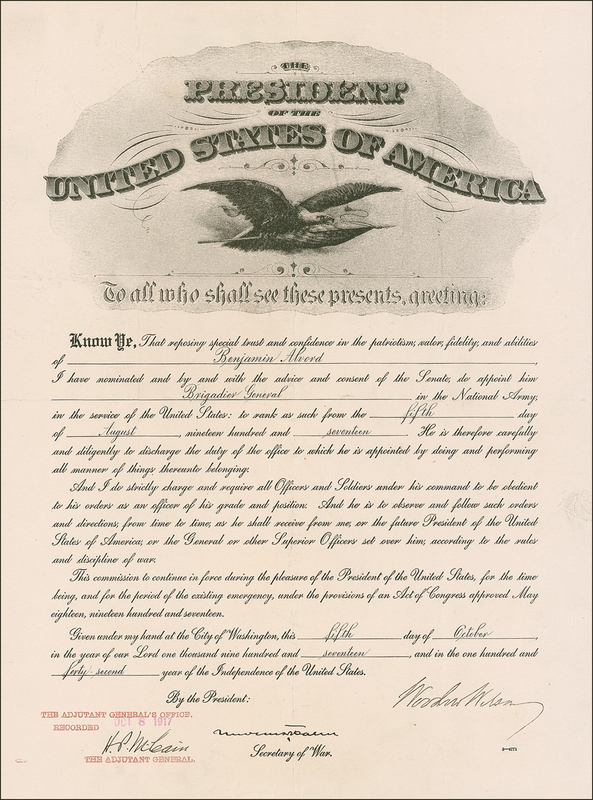 THE
PRESIDENT
OF THE
UNITED STATES OF AMERICA
To all who shall see these presents, greeting:
Know Ye, That reposing special trust and confidence in the patriotism, valor, fidelity, and abilities
of Benjamin Alvord,
I have nominated and by and with the advice and consent of the Senate, do appoint him
Brigadier General in the National Army,
in the service of the United States: to rank as such from the fifth day
of August, nineteen hundred and seventeen He is therefore carefully
and diligently to discharge the duty of the office to which he is appointed by doing and performing
all manner of things thereunto belonging.
And I do strictly charge and require all Officers and Soldiers under his command to be obedient
to his orders as an officer of his grade and position. And he is to observe and follow such orders
and directions, from time to time, as he shall receive from me, or the future President of the United
States of America, or the General or other Superior Officers set over him, according to the rules
and discipline of war.
This commission to continue in force during the pleasure of the President of the United States, for the time
being, and for the period of the existing emergency, under the provisions of an Act of Congress approved May
eighteen, nineteen hundred and seventeen.
Given under my hand at the City of Washington, this fifth day of October,
in the year of our Lord one thousand nine hundred and seventeen, and in the one hundred and
forty-second year of the Independence of the United States.
By the President: Woodrow Wilson
THE ADJUTANT GENERAL'S OFFICE.
RECORDED OCT 8 1917
H.P. McCain
THE ADJUTANT GENERAL.
Newton D. Baker
Secretary of War.